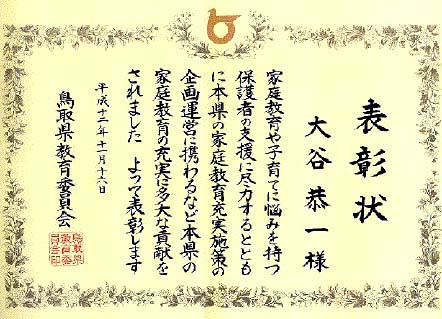 表彰状
大谷恭一様
家庭教育や子育てに悩みを持つ
保護者の支援に尽力するととも
に本県の家庭教育充実施策の
企画運営に携わるなど本県の
家庭教育の充実に多大な貢献を
されました よって表彰します
平成十二年十一月十八日
鳥取県教育委員会
鳥取県
教育委
員会印